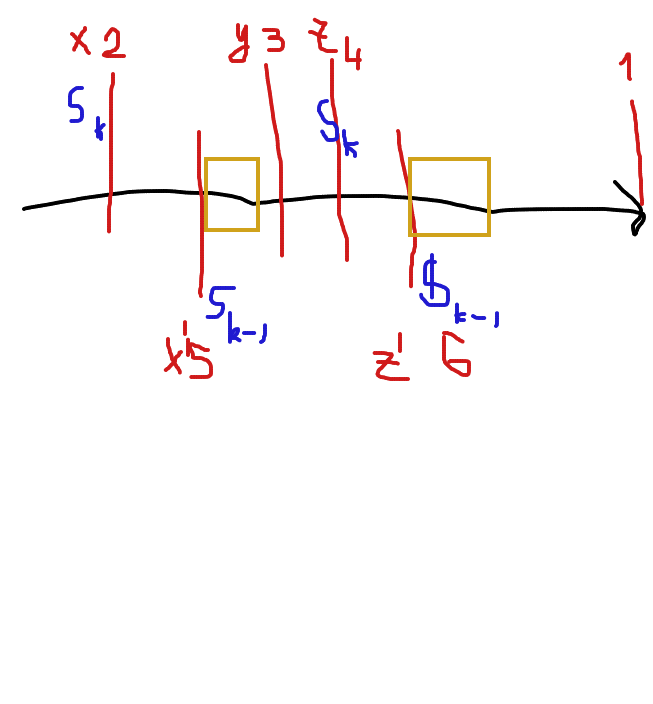 x 2 y 3 z 4 1
S k S k
S k-1 S k-1
x' 5 z' 6